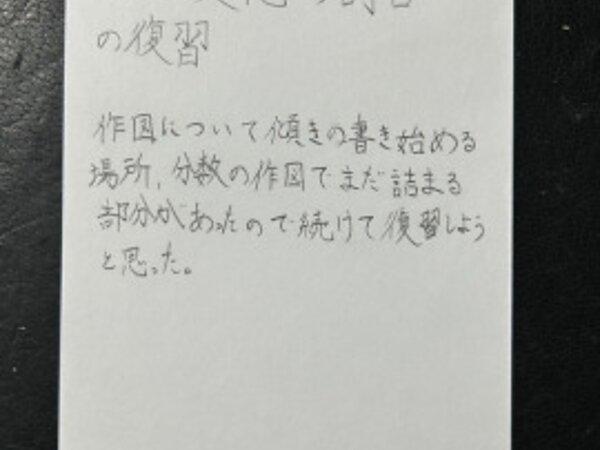 の復習
作図について傾きの書き始める
場所,分数の作図でまだ詰まる
部分があったので続けて復習しよう
と思った。